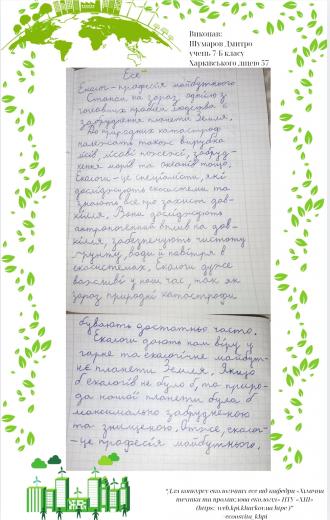 Виконав:
Шумаров Дмитро
учень 7-Б класу
Харківського ліцею 57
Есе
Еколог-професія майбутнього
Станом на зараз, однією з
головних проблем людства є
забруднення планети Земля.
До природних катастроф
належать також вирубка
лісів, лісові пожежі, забруд-
нення морів та океанів тощо.
Екологи - це спеціалісти, які
досліджують екосистеми та
знають все про захист дов-
кілля. Вони досліджують
антропогенний вплив на дов-
кілля, забезпечують чистоту
ґрунту, води й повітря в
екосистемах. Екологи дуже
важливі у наш час, так як
зараз природні катастрофи
бувають достатньо часто.
Екологи дають нам віру у
гарне та екологічне майбут-
нє планети Земля. Якщо
б екологів не було б, то приро-
да нашої планети була б
максимально забрудненою
та знищеною. Отже, еколог-
це професія майбутнього.
"Для конкурсу екологічних есе від кафедри «Хімічна
техніка та промислова екологія» НТУ «ХПІ»
(https: web.kpi.kharkov.ua htpe )"